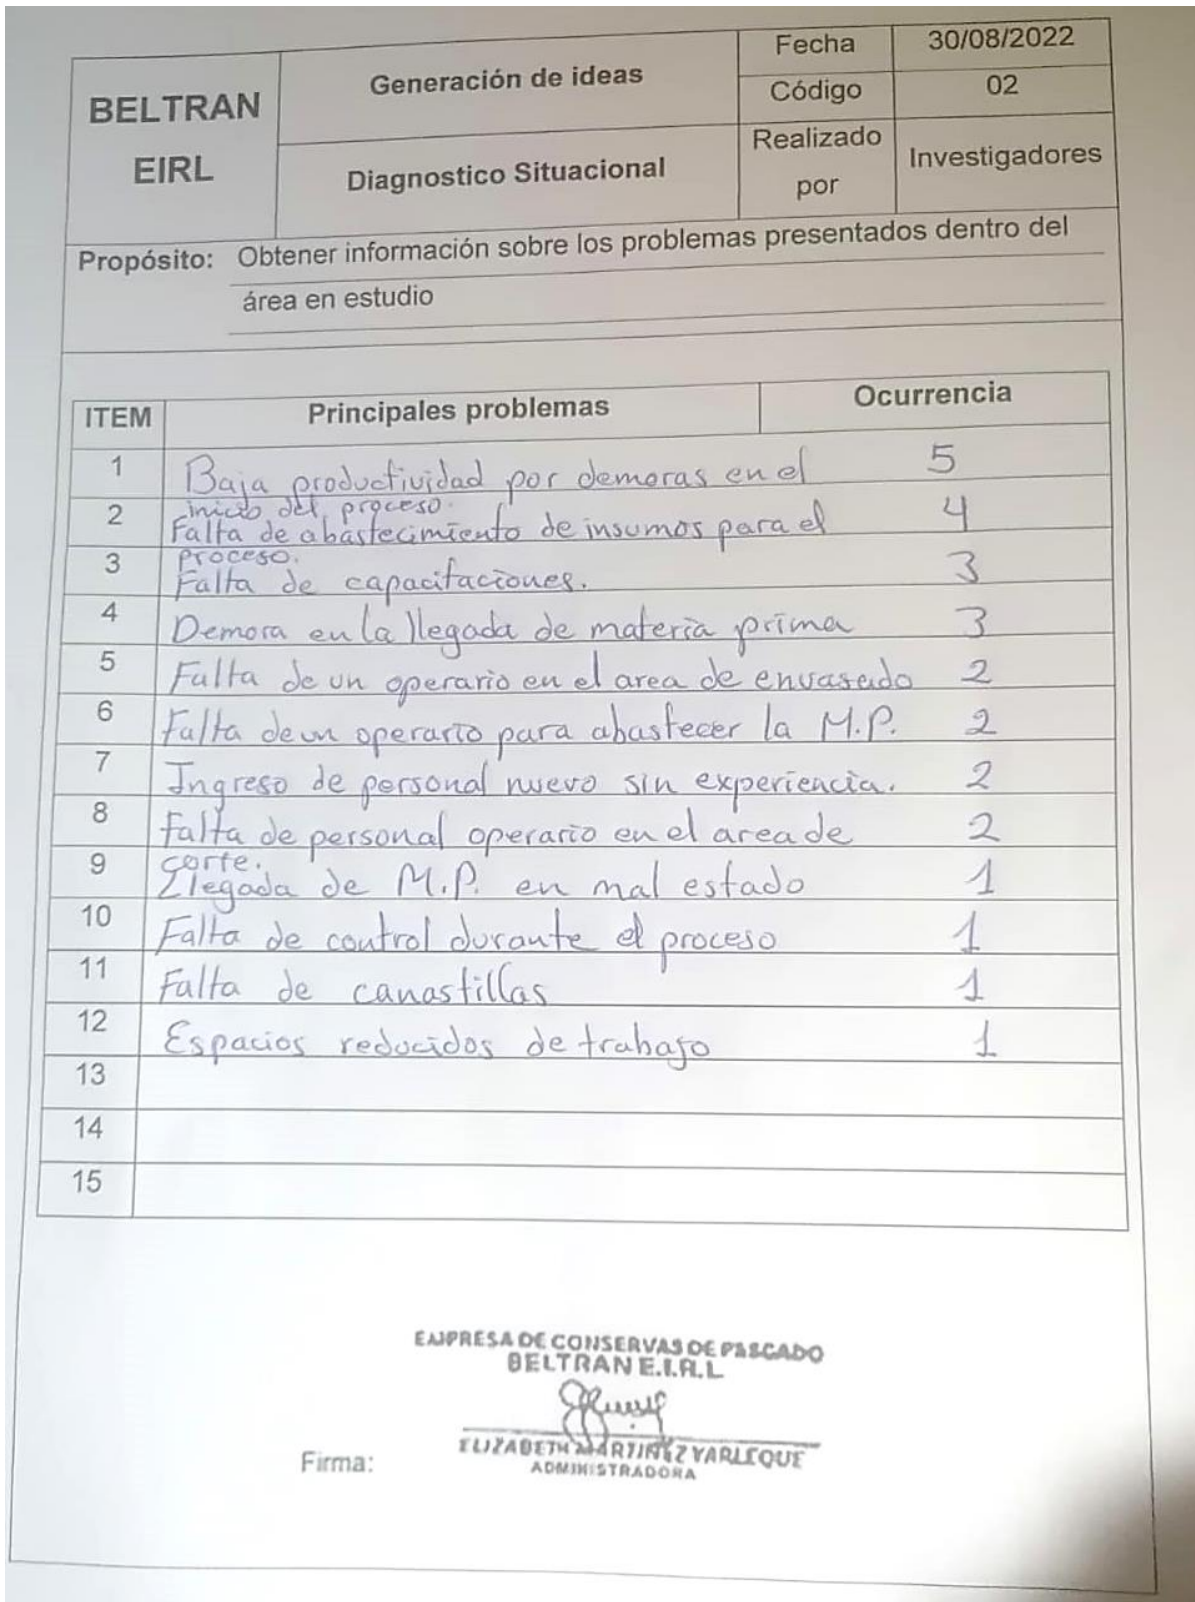 BELTRAN
EIRL
Generación de ideas
Diagnostico Situacional
Fecha
30/08/2022
Código
02
Realizado
por
Investigadores
Propósito: Obtener información sobre los problemas presentados dentro del
área en estudio
ITEM Principales problemas Ocurrencia
1 Baja productividad por demoras en el 5
inicio del proceso.
2 Falta de abastecimiento de insumos para el 4
proceso.
3 Falta de capacitaciones. 3
4 Demora en la llegada de materia prima 3
5 Falta de un operario en el area de envasado 2
6 Falta de un operario para abastecer la M.P. 2
7 Ingreso de personal nuevo sin experiencia. 2
8 Falta de personal operario en el area de 2
corte.
9 Llegada de M.P. en mal estado 1
10 Falta de control durante el proceso 1
11 Falta de canastillas 1
12 Espacios reducidos de trabajo 1
13
14
15
EMPRESA DE CONSERVAS DE PESCADO
BELTRAN E.I.R.L
Firma:
ELIZABETH MARTINEZ YARLEQUE
ADMINISTRADORA